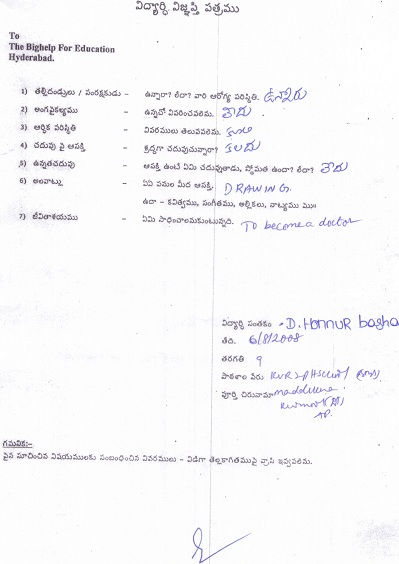 విద్యార్థి విజ్ఞప్తి పత్రము
To
The Bighelp For Education
Hyderabad.
1) తల్లిదండ్రులు / సంరక్షకుడు – ఉన్నారా? లేదా? వారి ఆరోగ్య పరిస్థితి. ఉన్నారు
2) అంగవైకల్యము – ఉన్నచో వివరించవలెను. కాదు
3) ఆర్థిక పరిస్థితి – వివరములు తెలుపవలెను.
4) చదువు పై ఆసక్తి – శ్రద్ధగా చదువుచున్నారా? కలదు
5) ఉన్నతచదువు – ఆసక్తి ఉంటే ఏమి చదువుతాడు, స్తోమత ఉందా? లేదా? కాదు
6) అలవాట్లు – ఏఏ పనుల మీద ఆసక్తి. DRAWING.
ఉదా – కవిత్వము, సంగీతము, అల్లికలు, నాట్యము మొ॥
7) జీవితాశయము – ఏమి సాధించాలనుకుంటున్నది. To become a doctor
విద్యార్థి సంతకం - D. Honnur basha
తేది. 6/8/2008
తరగతి 9
పాఠశాల పేరు
పూర్తి చిరునామా
AP.
గమనిక:-
పైన సూచించిన విషయములకు సంబంధించిన వివరములు – విడిగా తెల్లకాగితముపై వ్రాసి ఇవ్వవలెను.